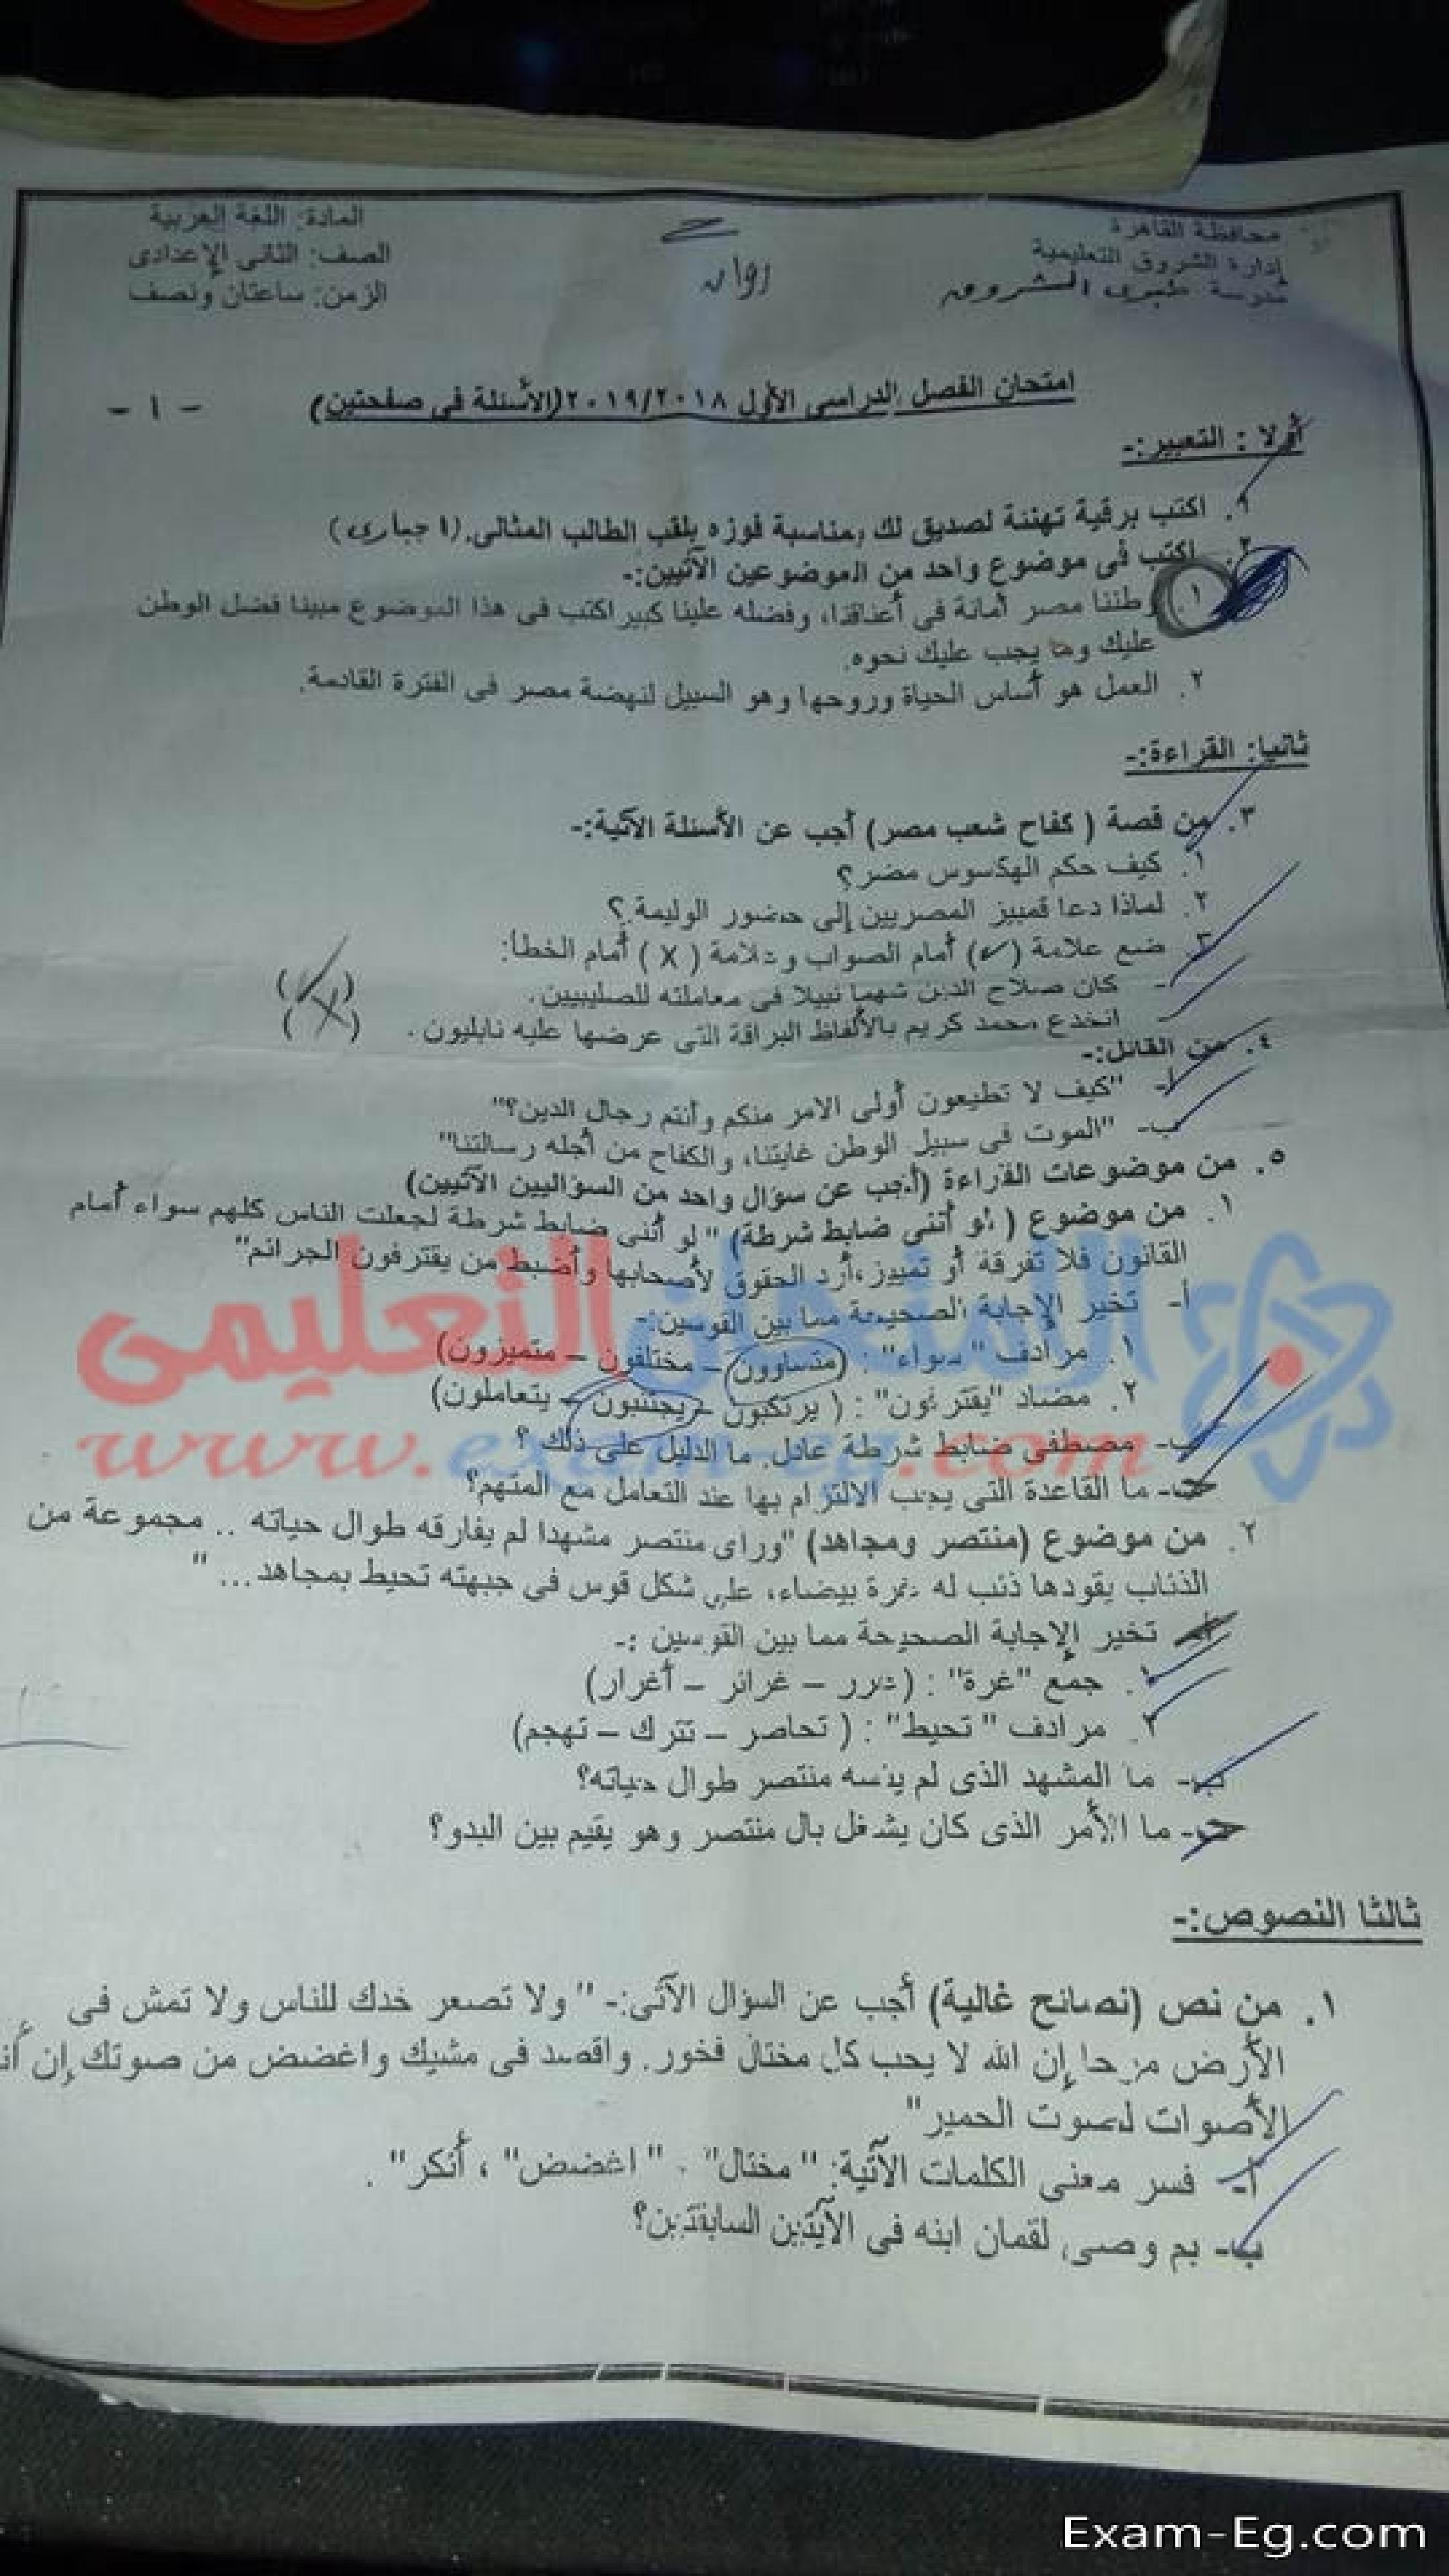 محافظة القاهرة
إدارة الشروق التعليمية
مدرسة الشروق
روان
المادة: اللغة العربية
الصف: الثانى الإعدادى
الزمن: ساعتان ونصف
امتحان الفصل الدراسى الأول ٢٠١٩/٢٠١٨ (الأسئلة فى صفحتين)
- ١ -
أولا : التعبير:-
١. اكتب برقية تهنئة لصديق لك بمناسبة فوزه بلقب الطالب المثالى. (اجبارى)
٢. اكتب فى موضوع واحد من الموضوعين الآتيين:-
١. وطننا مصر أمانة فى أعناقنا، وفضله علينا كبير اكتب فى هذا الموضوع مبينا فضل الوطن
عليك وما يجب عليك نحوه.
٢. العمل هو أساس الحياة وروحها وهو السبيل لنهضة مصر فى الفترة القادمة.
ثانيا: القراءة:-
٣. من قصة ( كفاح شعب مصر) أجب عن الأسئلة الآتية:-
١. كيف حكم الهكسوس مصر؟
٢. لماذا دعا قمبيز المصريين إلى حضور الوليمة ؟
٣. ضع علامة (✓) أمام الصواب وعلامة ( X ) أمام الخطأ:
- كان صلاح الدين شهما نبيلا فى معاملته للصليبيين. (✓)
- انخدع محمد كريم بالألفاظ البراقة التى عرضها عليه نابليون . (X)
٤. من القائل:-
أ- "كيف لا تطيعون أولى الامر منكم وأنتم رجال الدين؟"
ب- "الموت فى سبيل الوطن غايتنا، والكفاح من أجله رسالتنا"
٥. من موضوعات القراءة (أجب عن سؤال واحد من السؤاليين الآتيين)
١. من موضوع ( لو أننى ضابط شرطة) " لو أننى ضابط شرطة لجعلت الناس كلهم سواء أمام
القانون فلا تفرقة أو تمييز، أرد الحقوق لأصحابها وأضبط من يقترفون الجرائم"
أ- تخير الإجابة الصحيحة مما بين القوسين:-
١. مرادف "سواء" : (متساوون – مختلفون – متميزون)
٢. مضاد "يقترفون" : ( يرتكبون – يجتنبون – يتعاملون)
ب- مصطفى ضابط شرطة عادل. ما الدليل على ذلك ؟
حـ- ما القاعدة التى يجب الالتزام بها عند التعامل مع المتهم؟
٢. من موضوع (منتصر ومجاهد) "وراى منتصر مشهدا لم يفارقه طوال حياته .. مجموعة من
الذئاب يقودها ذئب له غرة بيضاء، على شكل قوس فى جبهته تحيط بمجاهد... "
أ- تخير الإجابة الصحيحة مما بين القوسين :-
١. جمع "غرة" : (غرر – غرائز – أغرار)
٢. مرادف " تحيط" : ( تحاصر – تترك – تهجم)
ب- ما المشهد الذى لم ينسه منتصر طوال حياته؟
حـ- ما الأمر الذى كان يشغل بال منتصر وهو يقيم بين البدو؟
ثالثا النصوص:-
١. من نص (نصائح غالية) أجب عن السؤال الآتى:- " ولا تصعر خدك للناس ولا تمش فى
الأرض مرحا إن الله لا يحب كل مختال فخور. واقصد فى مشيك واغضض من صوتك إن
الأصوات لصوت الحمير"
أ- فسر معنى الكلمات الآتية: " مختال" . " اغضض" ، أنكر" .
ب- بم وصى لقمان ابنه فى الآيتين السابقتين؟
الامتحان التعليمى
www.exam-eg.com
Exam-Eg.com